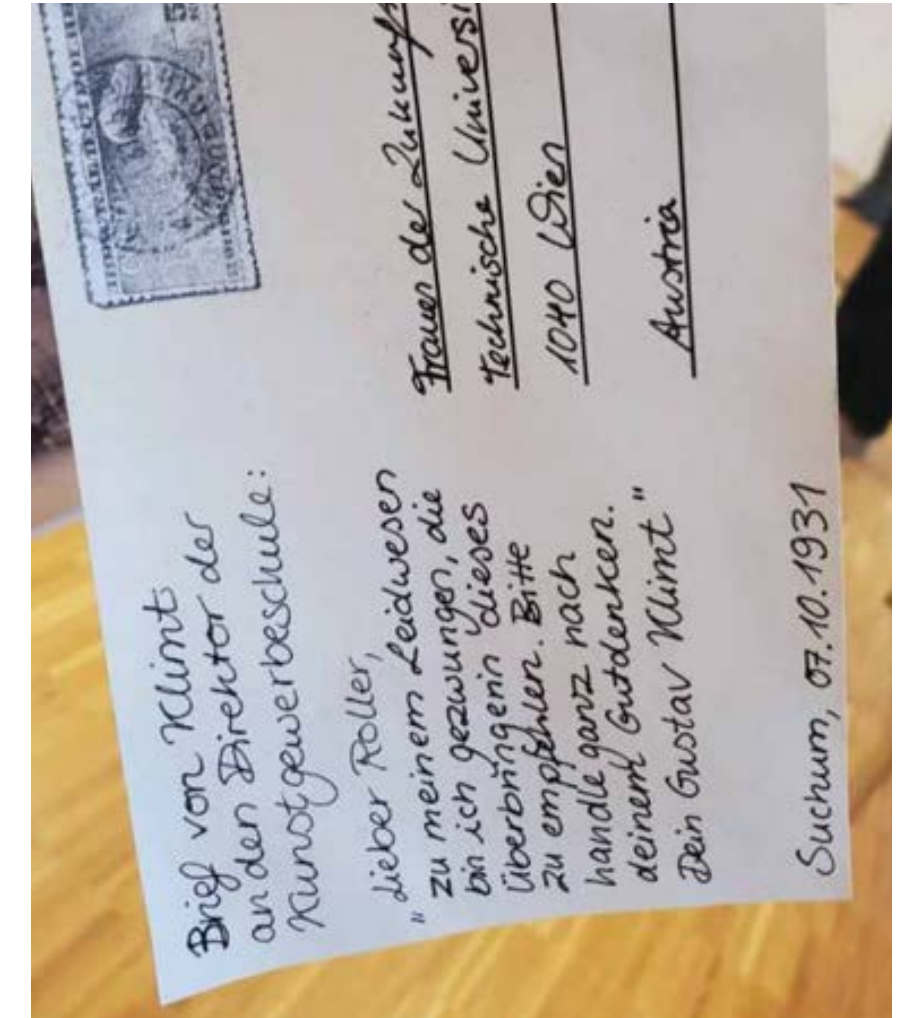 Brief von Klimt
an den Direktor der
Kunstgewerbeschule:
Lieber Roller,
"zu meinem Leidwesen
bin ich gezwungen, die
Überbringerin dieses
zu empfehlen. Bitte
handle ganz nach
deinem Gutdenken.
Dein Gustav Klimt"
Suchum, 07.10.1931
Frauen der Zukunft
Technische Universi
1040 Wien
Austria